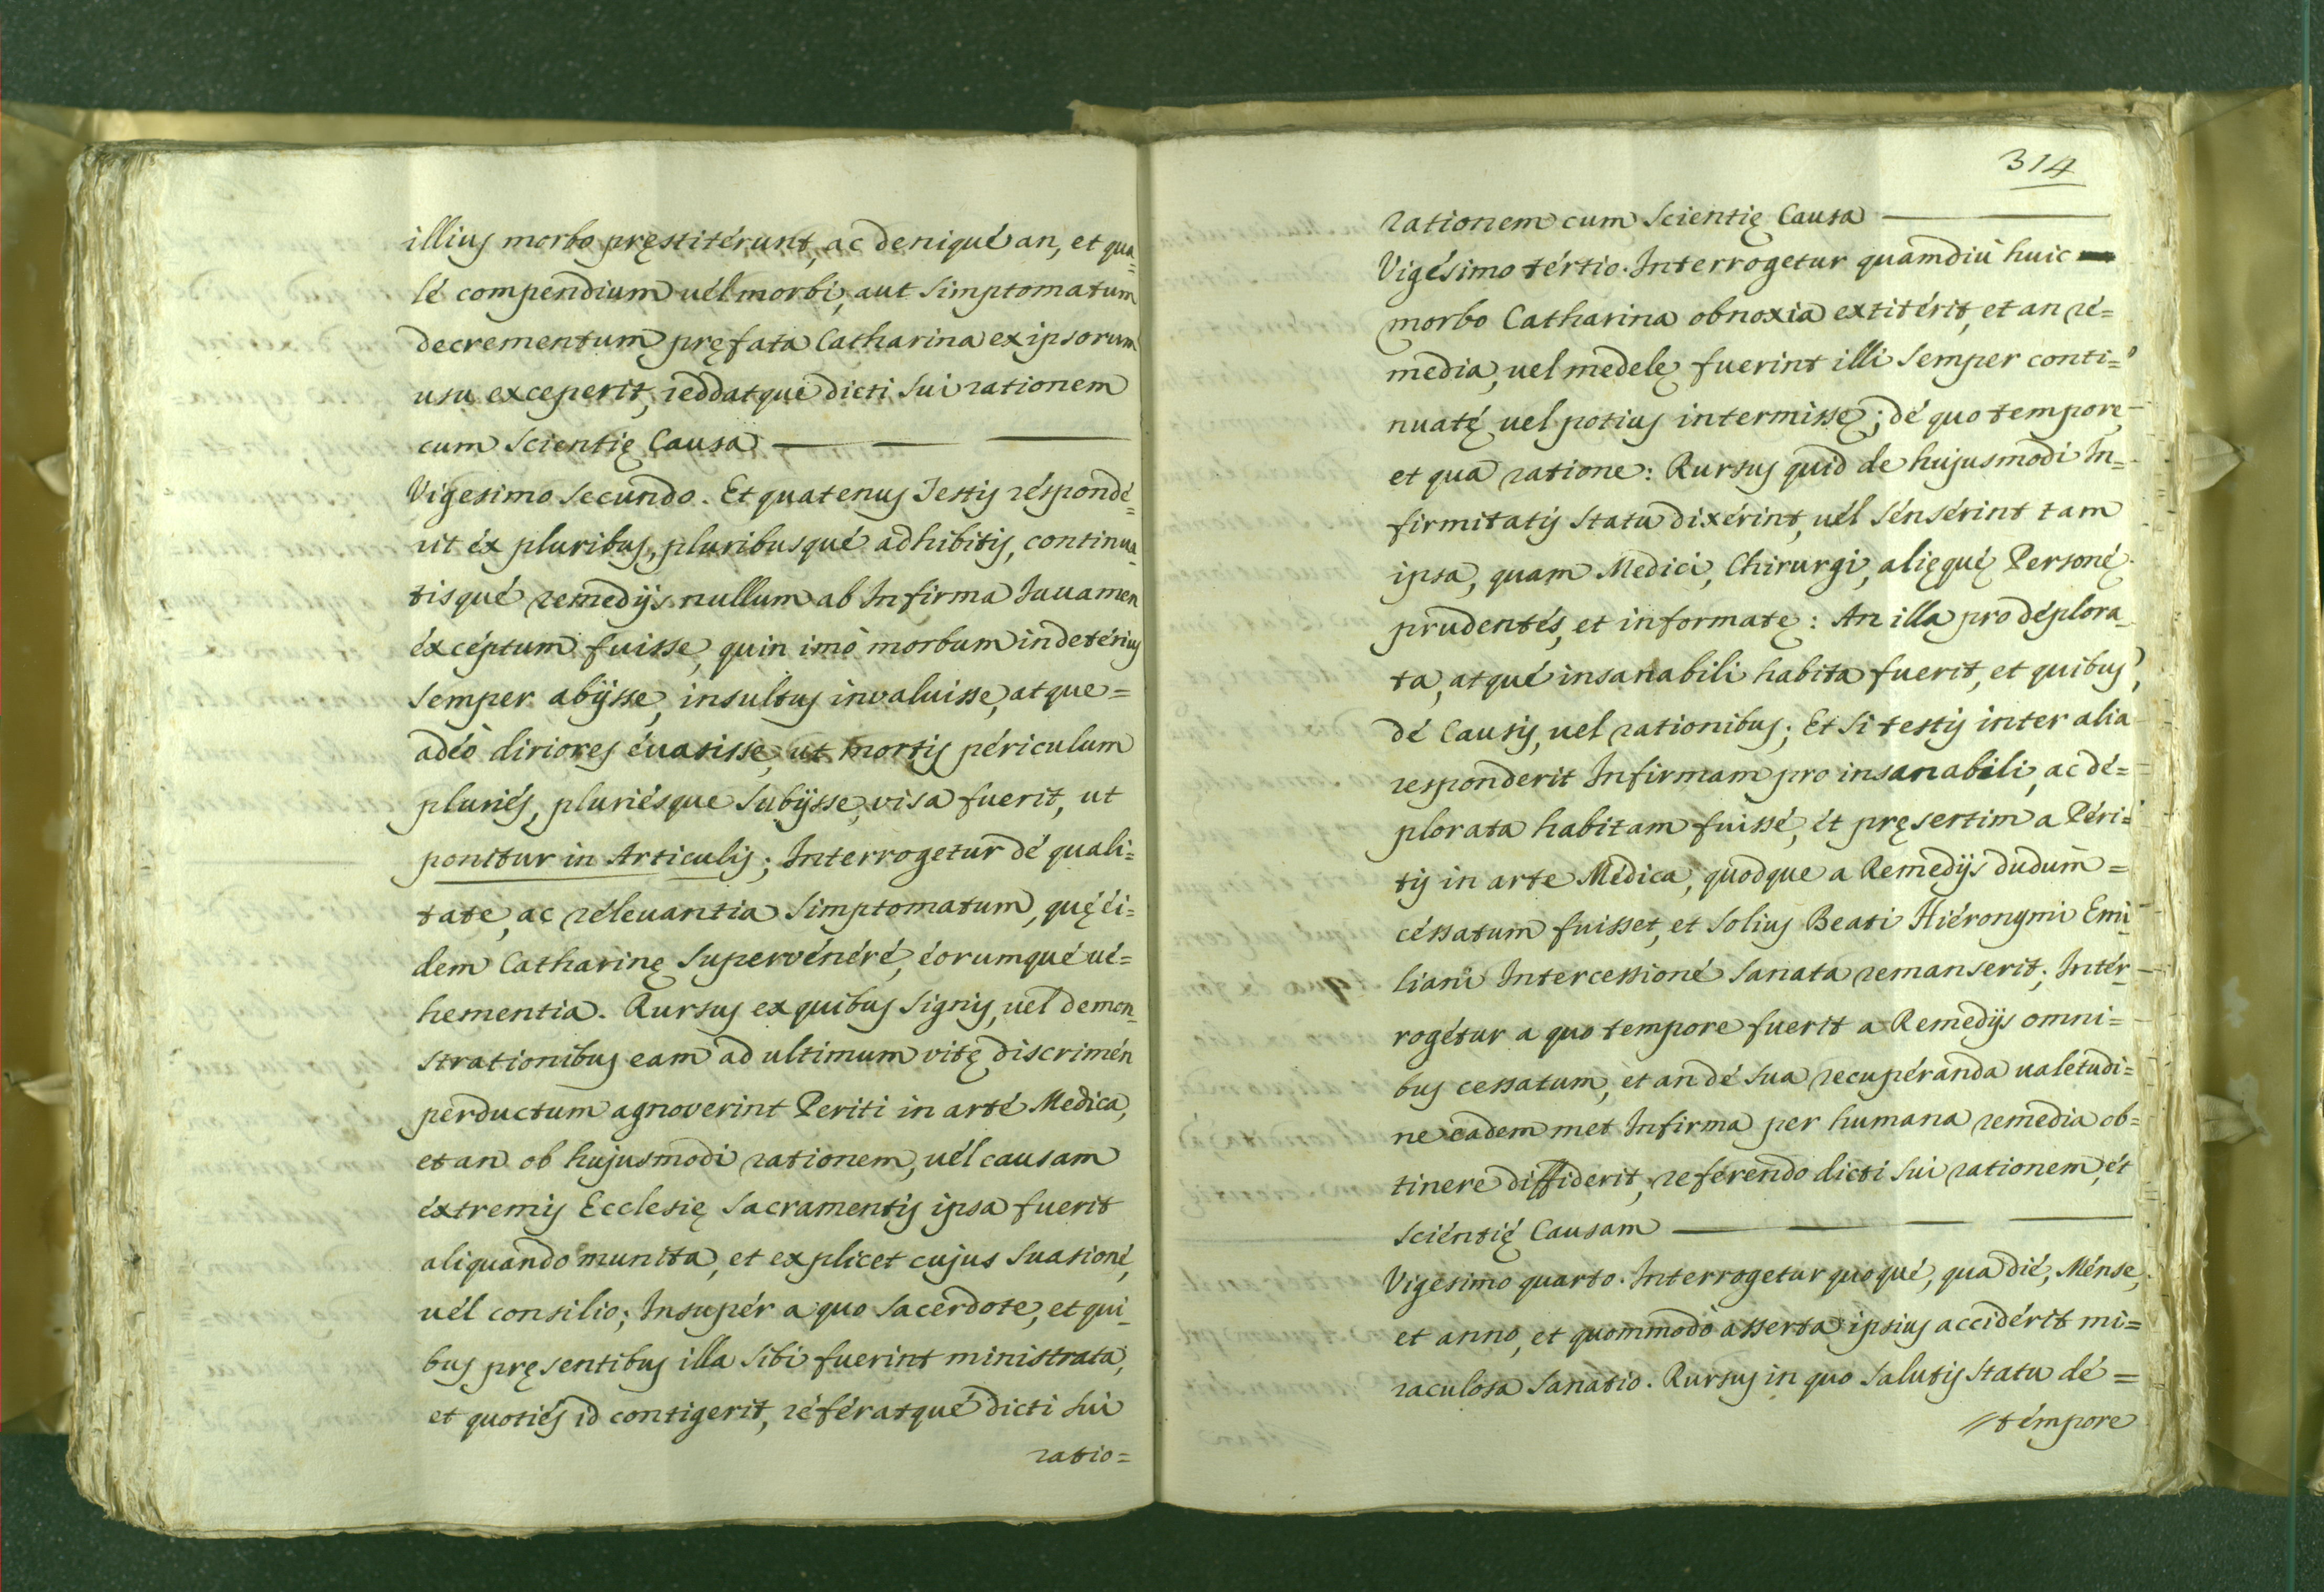 illius morbo pręstitérunt, ac deniqué an, et qua=
lé compendium uél morbi, aut Simptomatum
decrementum pręfata Catharina ex ipsorum
usu exceperit, reddatque dicti Sui rationem
cum Scientię Causa
Vigesimo Secundo. Et quatenus Testis réspondé=
rit éx pluribus, pluribusqué adhibitis, continua=
tisqué remedijs nullum ab Infirma Iuuamen
éxcéptum fuisse, quin imò morbum in detérius
Semper abijsse, insultus invaluisse, atque=
adéò diriores éuasisse, ut mortis périculum
pluriés, pluriésque Subijsse, visa fuerit, ut
ponitur in Articulis; Interrogetur dé quali=
tate, ac réleuantia Simptomatum, quę éi=
dem Catharinę Supervénéré, éorumqué ué=
hementia. Rursus ex quibus Signis, uel demon=
strationibus eam ad ultimum vitę discrimén
perductum agnoverint Periti in arté Medica,
et an ob hujusmodi rationem, uél causam
éxtremis Ecclesię Sacramentis ipsa fuerit
aliquando munita, et explicet cujus Suasioné,
uél consilio; Insupér a quo Sacerdote, et qui=
bus pręsentibus illa Sibi fuerint ministrata,
et quotiés id contigerit, référatqué dicti Sui
ratio=
314
rationem cum Scientię Causa
Vigésimo tértio. Interrogetur quamdiù huic
morbo Catharina obnoxia extitérit, et an ré=
media, uel medelę fuerint illi Semper conti=
nuatę, uel potius intermissę; dé quo tempore,
et qua ratione: Rursus quid de hujusmodi In=
firmitatis Statu dixérint, uél Sénsérint tam
ipsa, quam Medici, Chirurgi, alięqué Personę
prudentés, et informatę: An illa pro déplora=
ta, atqué insanabili habita fuerit, et quibus
dé Causis, uel rationibus; Et Si testis inter alia
responderit Infirmam pro insanabili, ac dé=
plorata habitam fuissé, ét pręsertim a Péri=
tis in arte Médica, quodque a Remedijs dudum=
céssatum fuisset, et Solius Beati Hiéronymi Emi=
liani Intercessioné Sanata remanserit; Intér=
rogétur a quo tempore fuerit a Remedijs omni=
bus cessatum, et an dé Sua recupéranda ualétudi=
ne eadem met Infirma per humana remedia ob=
tinere diffiderit, reférendo dicti Sui rationem, ét
Sciéntię Causam
Vigesimo quarto. Interrogetur quoqué, qua dié, Ménse,
et anno, et quommodò asserta ipsius accidérit mi=
raculosa Sanatio. Rursus in quo Salutis Statu dé=
témpore